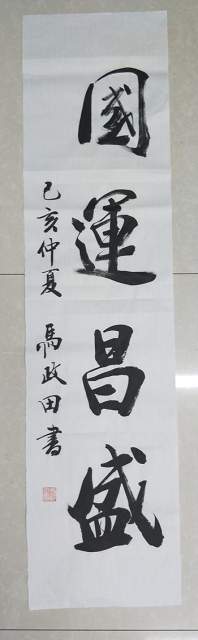 國運昌盛
己亥仲夏 馬政田書